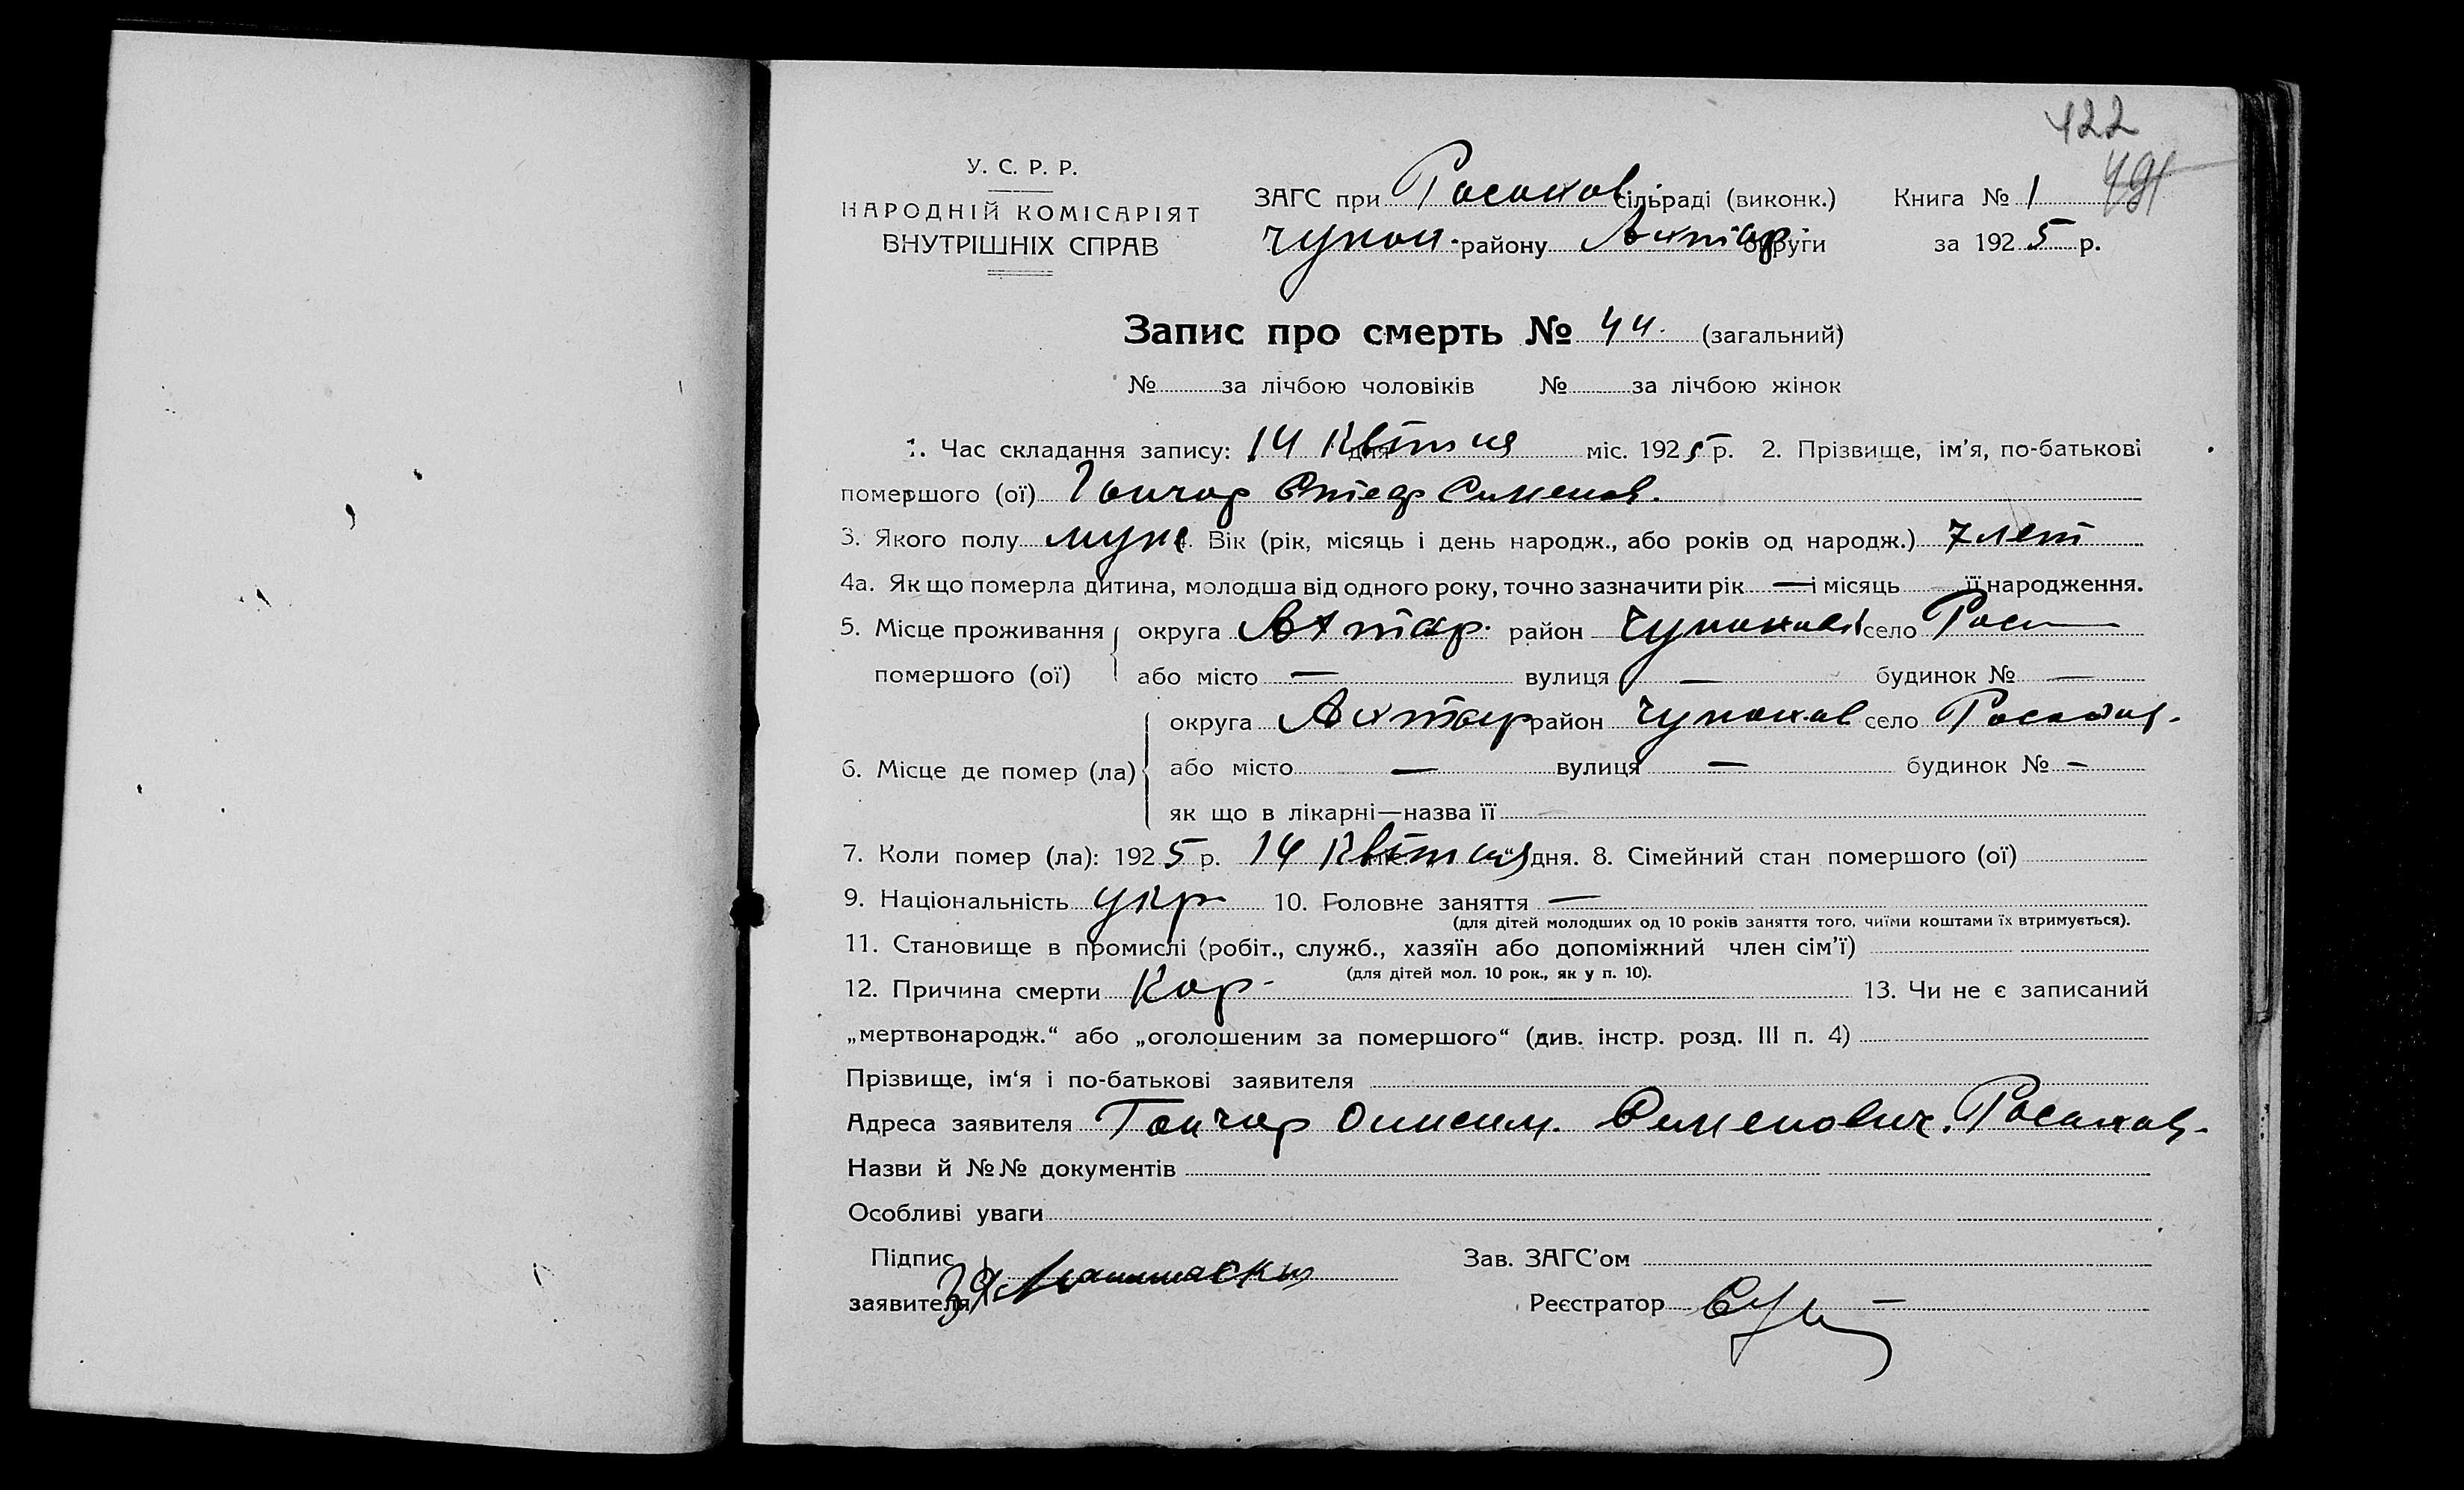 422
491
У. С. Р. Р.
НАРОДНІЙ КОМІСАРІЯТ
ВНУТРІШНІХ СПРАВ
ЗАГС при Росохов сільраді (виконк.) Книга № 1
Чупах. району Ахтир. округи за 1925 р.
Запис про смерть № 44. (загальний)
№ за лічбою чоловіків № за лічбою жінок
1. Час складання запису: 14 Квітня дня міс. 1925 р. 2. Прізвище, ім'я, по-батькові
помершого (ої) Гончар Семенов.
3. Якого полу муж 4. Вік (рік, місяць і день народж., або років од народж.) 7 лет
4а. Як що померла дитина, молодша від одного року, точно зазначити рік — і місяць — її народження.
5. Місце проживання округа Ахтир. район село Рос
помершого (ої) або місто — вулиця — будинок № —
округа Ахтир район село
6. Місце де помер (ла) або місто — вулиця — будинок № —
як що в лікарні—назва її
7. Коли помер (ла): 1925 р. 14 Квітня міс. дня. 8. Сімейний стан помершого (ої)
9. Національність укр 10. Головне заняття —
(для дітей молодших од 10 років заняття того, чиїми коштами їх втримується).
11. Становище в промислі (робіт., служб., хазяїн або допоміжний член сім'ї)
(для дітей мол. 10 рок., як у п. 10).
12. Причина смерти Кор- 13. Чи не є записаний
„мертвонародж.“ або „оголошеним за помершого“ (див. інстр. розд. III п. 4)
Прізвище, ім‘я і по-батькові заявителя
Адреса заявителя Гончар Онисим. Семенович.
Назви й №№ документів
Особливі уваги
Підпис Зав. ЗАГС'ом
заявителя Реєстратор